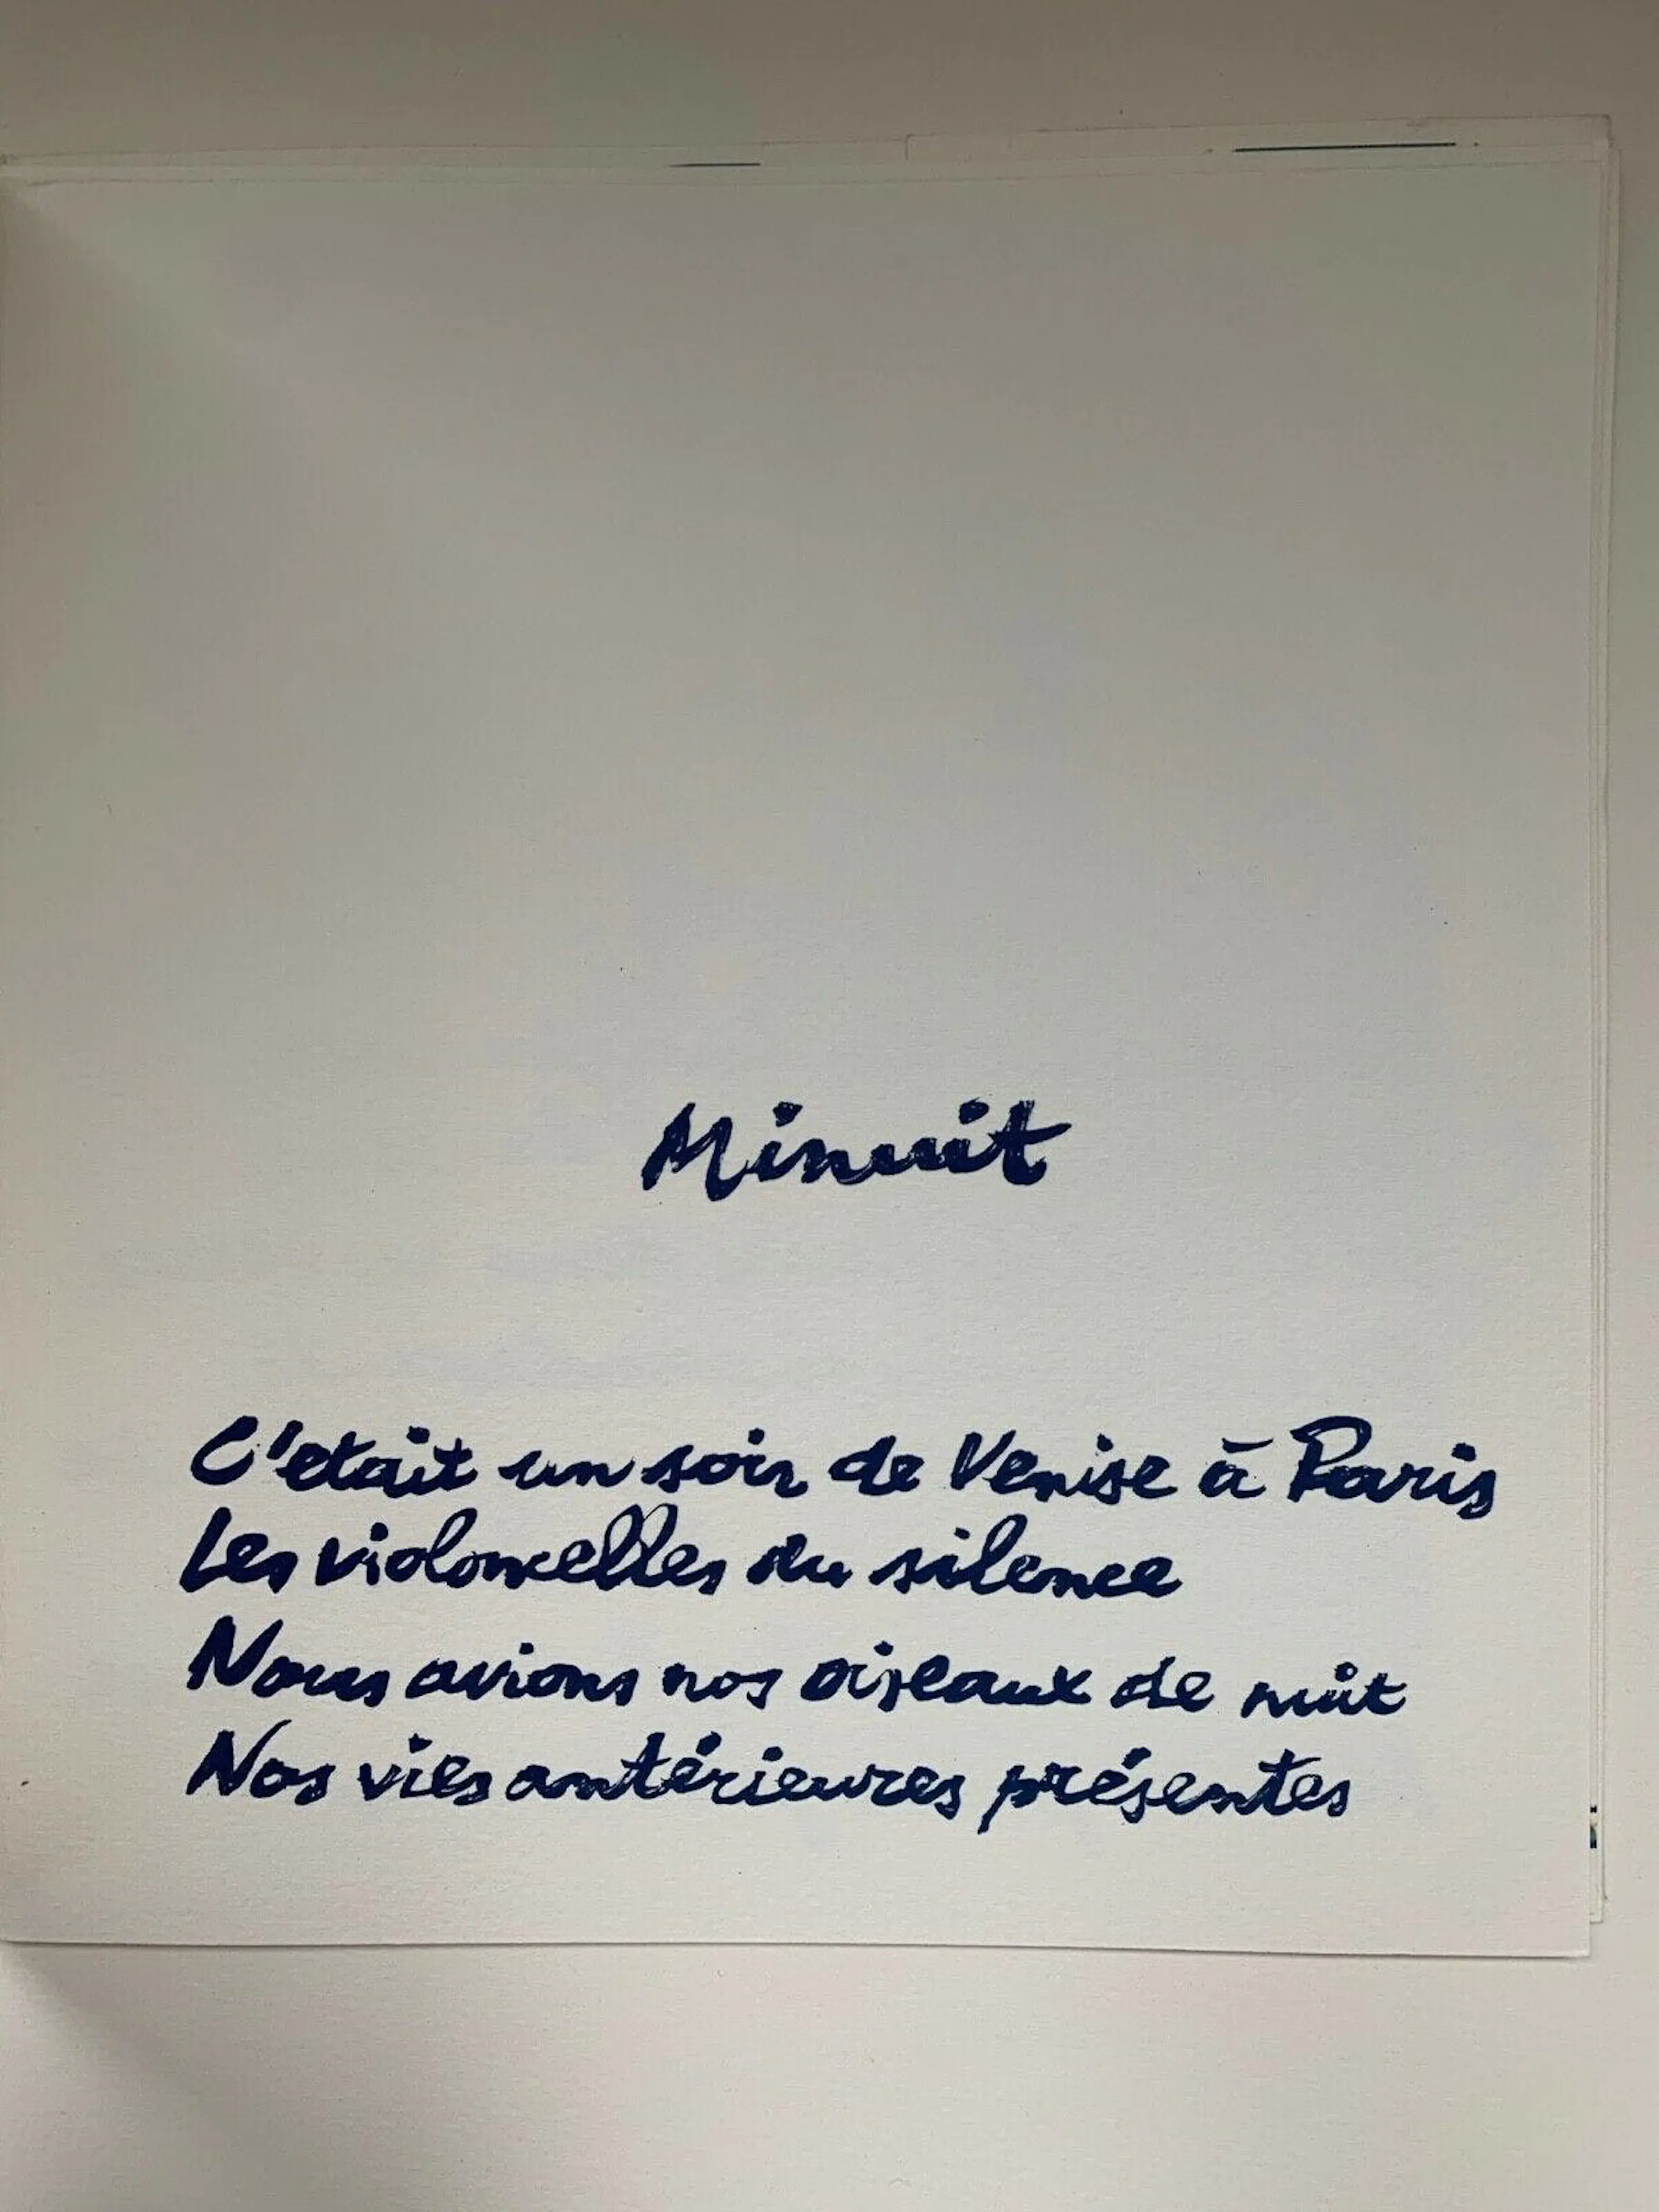 Minuit
C'etait un soir de Venise à Paris
Les violoncelles du silence
Nous avions nos oiseaux de nuit
Nos vies antérieures présentes